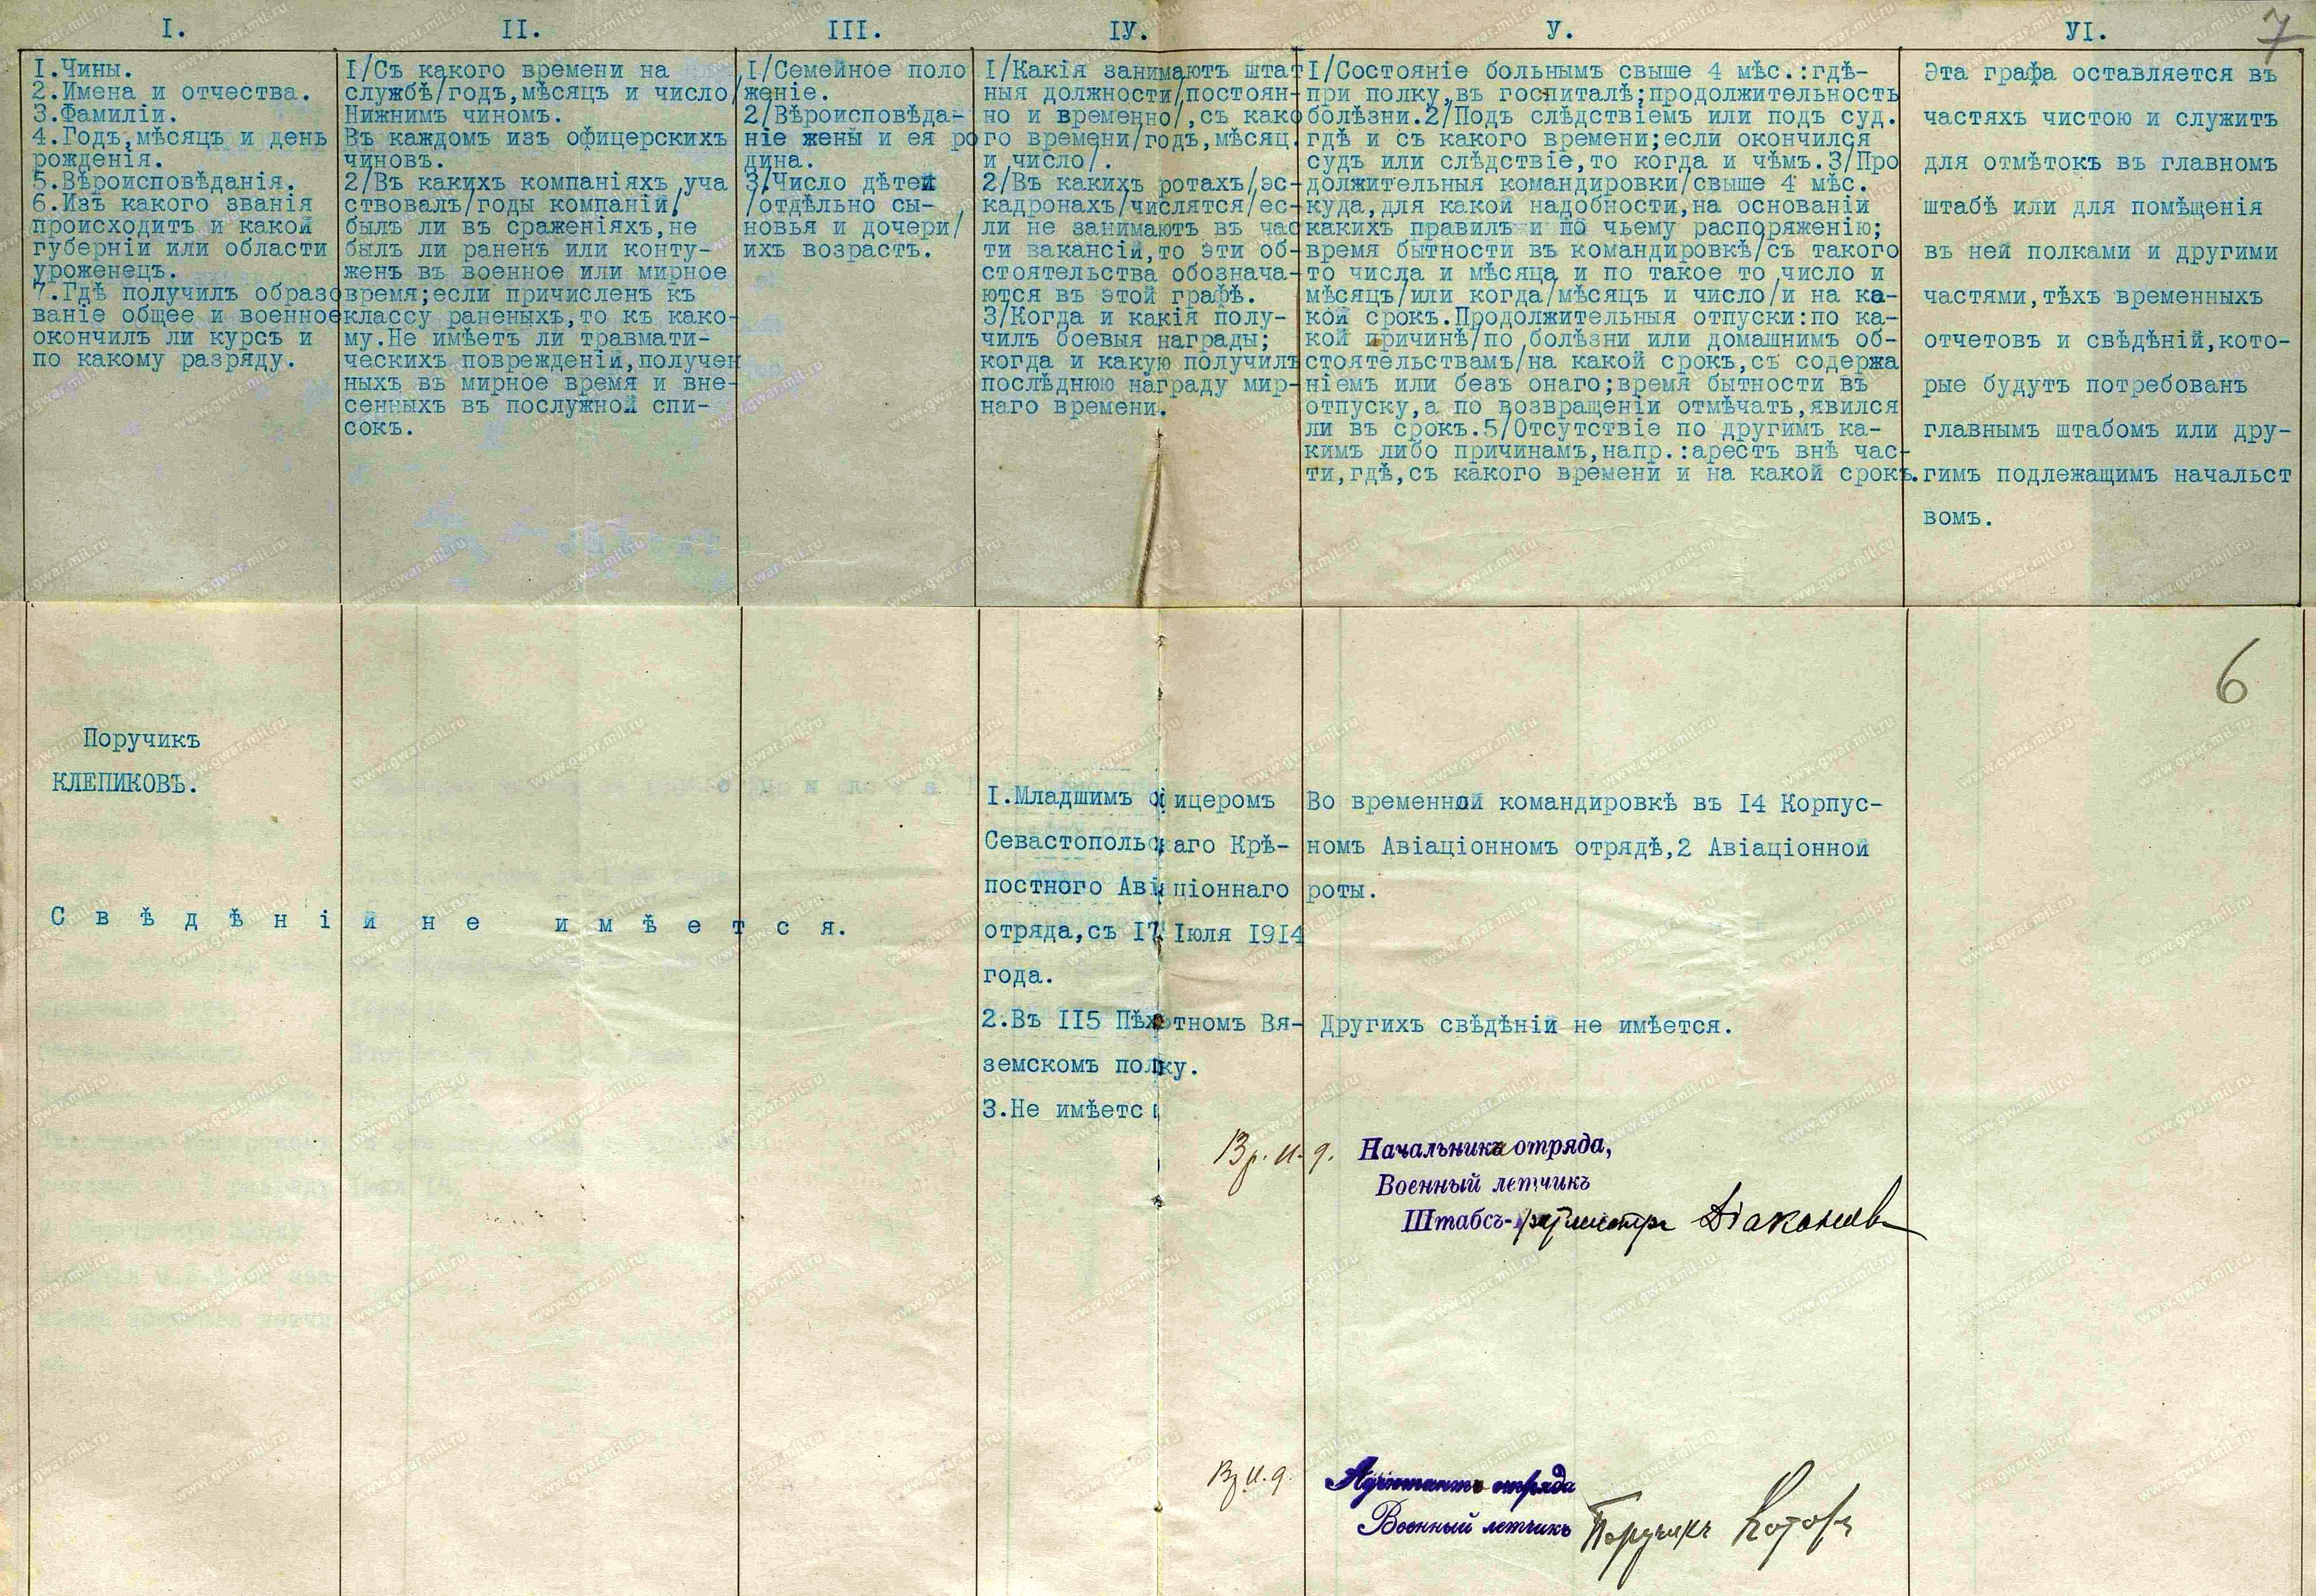 I.
II.
III.
IУ.
У.
УI.
7
I.Чины.
2.Имена и отчества.
3.Фамиліи.
4.Годъ,мѣсяцъ и день
рожденія.
5.Вѣроисповѣданія.
6.Изъ какого званія
происходитъ и какой
губерніи или области
уроженецъ.
7.Гдѣ получилъ образо
ваніе общее и военное
окончилъ ли курсъ и
по какому разряду.
I/Съ какого времени на
службѣ/годъ,мѣсяцъ и число/
Нижнимъ чиномъ.
Въ каждомъ изъ офицерскихъ
чиновъ.
2/Въ какихъ компаніяхъ уча
ствовалъ/годы компаній/
былъ ли въ сраженіяхъ,не
былъ ли раненъ или конту-
женъ въ военное или мирное
время;если причисленъ къ
классу раненыхъ,то къ како-
му.Не имѣетъ ли травмати-
ческихъ поврежденій,получен
ныхъ въ мирное время и вне-
сенныхъ въ послужной спи-
сокъ.
I/Семейное поло
женіе.
2/Вѣроисповѣда-
ніе жены и ея ро
дина.
3/Число дѣтей
/отдѣльно сы-
новья и дочери/
ихъ возрастъ.
I/Какія занимаютъ штат
ныя должности/постоян-
но и временно/,съ како
го времени/годъ,мѣсяц.
и число/.
2/Въ какихъ ротахъ/эс-
кадронахъ/числятся/ес-
ли не занимаютъ въ час
ти вакансій,то эти об-
стоятельства обознача-
ются въ этой графѣ.
3/Когда и какія полу-
чилъ боевыя награды;
когда и какую получилъ
послѣднюю награду мир-
наго времени.
I/Состояніе больнымъ свыше 4 мѣс.:гдѣ-
при полку,въ госпиталѣ;продолжительность
болѣзни.2/Подъ слѣдствіемъ или подъ суд.
гдѣ и съ какого времени;если окончился
судъ или слѣдствіе,то когда и чѣмъ.3/Про
должительныя командировки/свыше 4 мѣс.
куда,для какой надобности,на основаніи
какихъ правилъ и по чьему распоряженію;
время бытности въ командировкѣ/съ такого
то числа и мѣсяца и по такое то число и
мѣсяцъ/или когда/мѣсяцъ и число/и на ка-
кой срокъ.Продолжительныя отпуски:по ка-
кой причинѣ/по болѣзни или домашнимъ об-
стоятельствамъ/на какой срокъ,съ содержа
ніемъ или безъ онаго;время бытности въ
отпуску,а по возвращеніи отмѣчать,явился
ли въ срокъ.5/Отсутствіе по другимъ ка-
кимъ либо причинамъ,напр.:арестъ внѣ час-
ти,гдѣ,съ какого времени и на какой срокъ.
Эта графа оставляется въ
частяхъ чистою и служитъ
для отмѣтокъ въ главномъ
штабѣ или для помѣщенія
въ ней полками и другими
частями,тѣхъ временныхъ
отчетовъ и свѣдѣній,кото-
рые будутъ потребованъ
главнымъ штабомъ или дру-
гимъ подлежащимъ начальст
вомъ.
6
Поручикъ
КЛЕПИКОВЪ.
Свѣдѣній не имѣется.
I.Младшимъ офицеромъ
Севастопольскаго Крѣ-
постного Авіаціоннаго
отряда,съ 17 Іюля 1914
года.
2.Въ 115 Пѣхотномъ Вя-
земскомъ полку.
3.Не имѣетс
Во временной командировкѣ въ 14 Корпус-
номъ Авіаціонномъ отрядѣ,2 Авіаціонной
роты.
Другихъ свѣдѣній не имѣется.
Вр. и. д. Начальника отряда,
Военный летчикъ
Штабсъ-ротмистръ
Вр и. д. Адъютанта отряда
Военный летчикъ Поручикъ